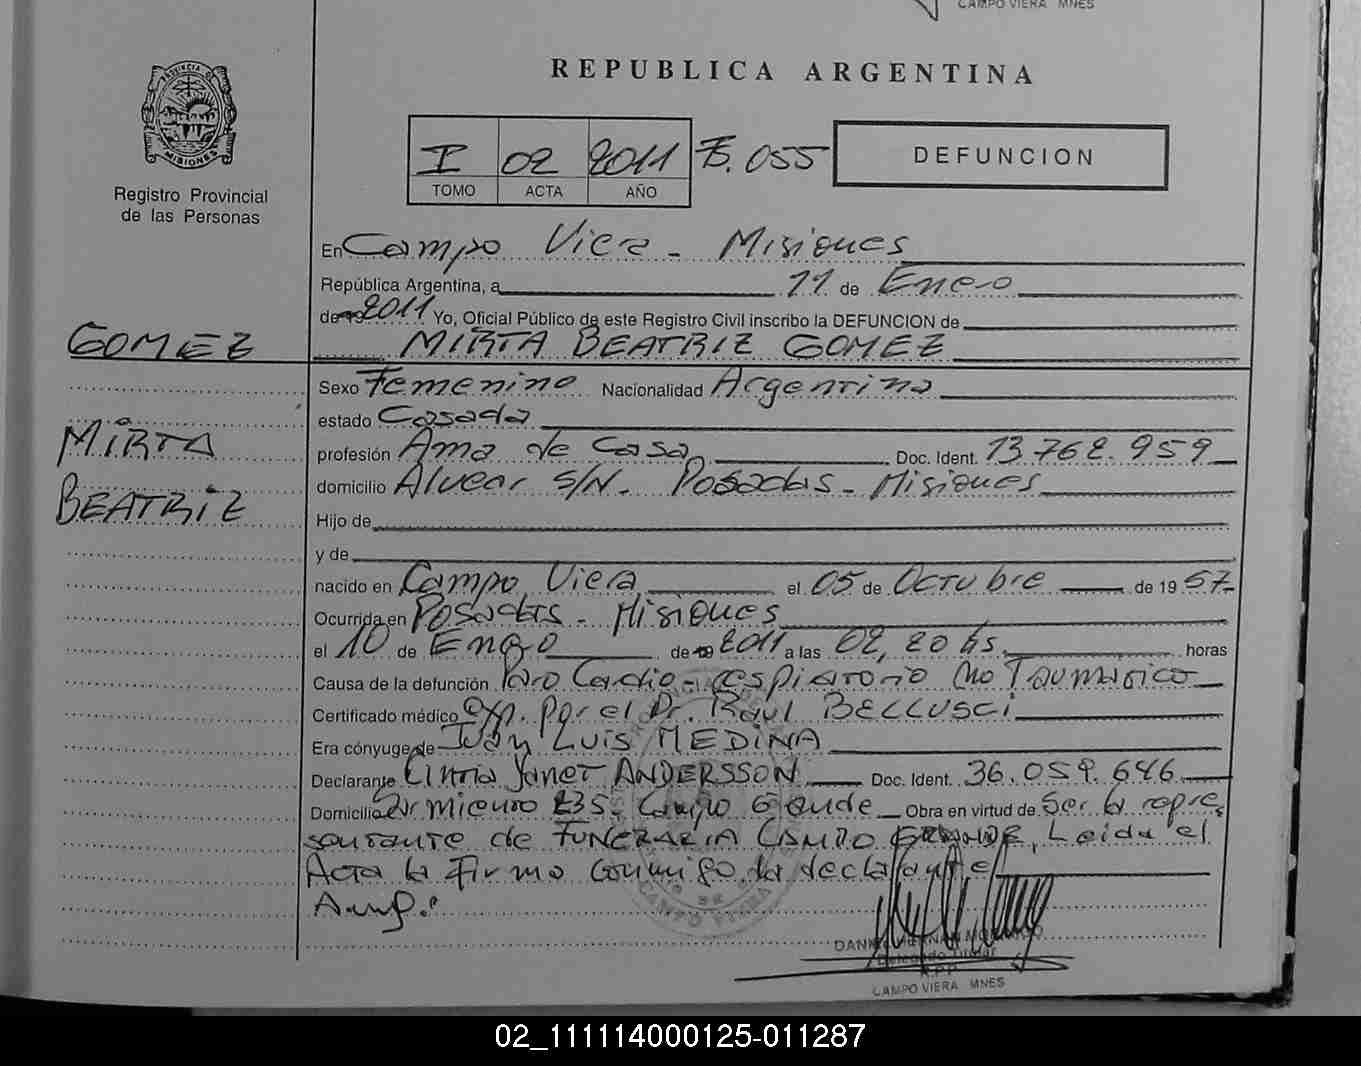 CAMPO VIERA MNES
REPUBLICA ARGENTINA
PROVINCIA DE
MISIONES
Registro Provincial
de las Personas
I 02 2011 F. 055
TOMO ACTA AÑO
DEFUNCION
En Campo Viera - Misiones
República Argentina, a 11 de Enero
de 19 2011 Yo, Oficial Público de este Registro Civil inscribo la DEFUNCION de
GOMEZ MIRTA BEATRIZ GOMEZ
Sexo Femenino Nacionalidad Argentina
estado Casada
MIRTA profesión Ama de Casa Doc. Ident. 13.762.959
domicilio Alvear S/N. Posadas - Misiones
BEATRIZ Hijo de
y de
nacido en Campo Viera el 05 de Octubre de 19 57
Ocurrida en Posadas - Misiones
el 10 de Enero de 19 2011 a las 02,20 hs. horas
Causa de la defunción Paro Cardio-respiratorio No Traumatico
Certificado médico exp. por el Dr. Raul BELLUSCI
Era cónyuge de Juan LUIS MEDINA
Declarante Cintia Janet ANDERSSON Doc. Ident. 36.059.646
Domicilio Sarmiento 235. Campo Grande Obra en virtud de Ser la repre
sentante de FUNERARIA CAMPO GRANDE, Leida el
Acta la Firma conmigo la declarante
CAMPO VIERA
Delegado Titular
R.P.P.
CAMPO VIERA MNES
02_111114000125-011287